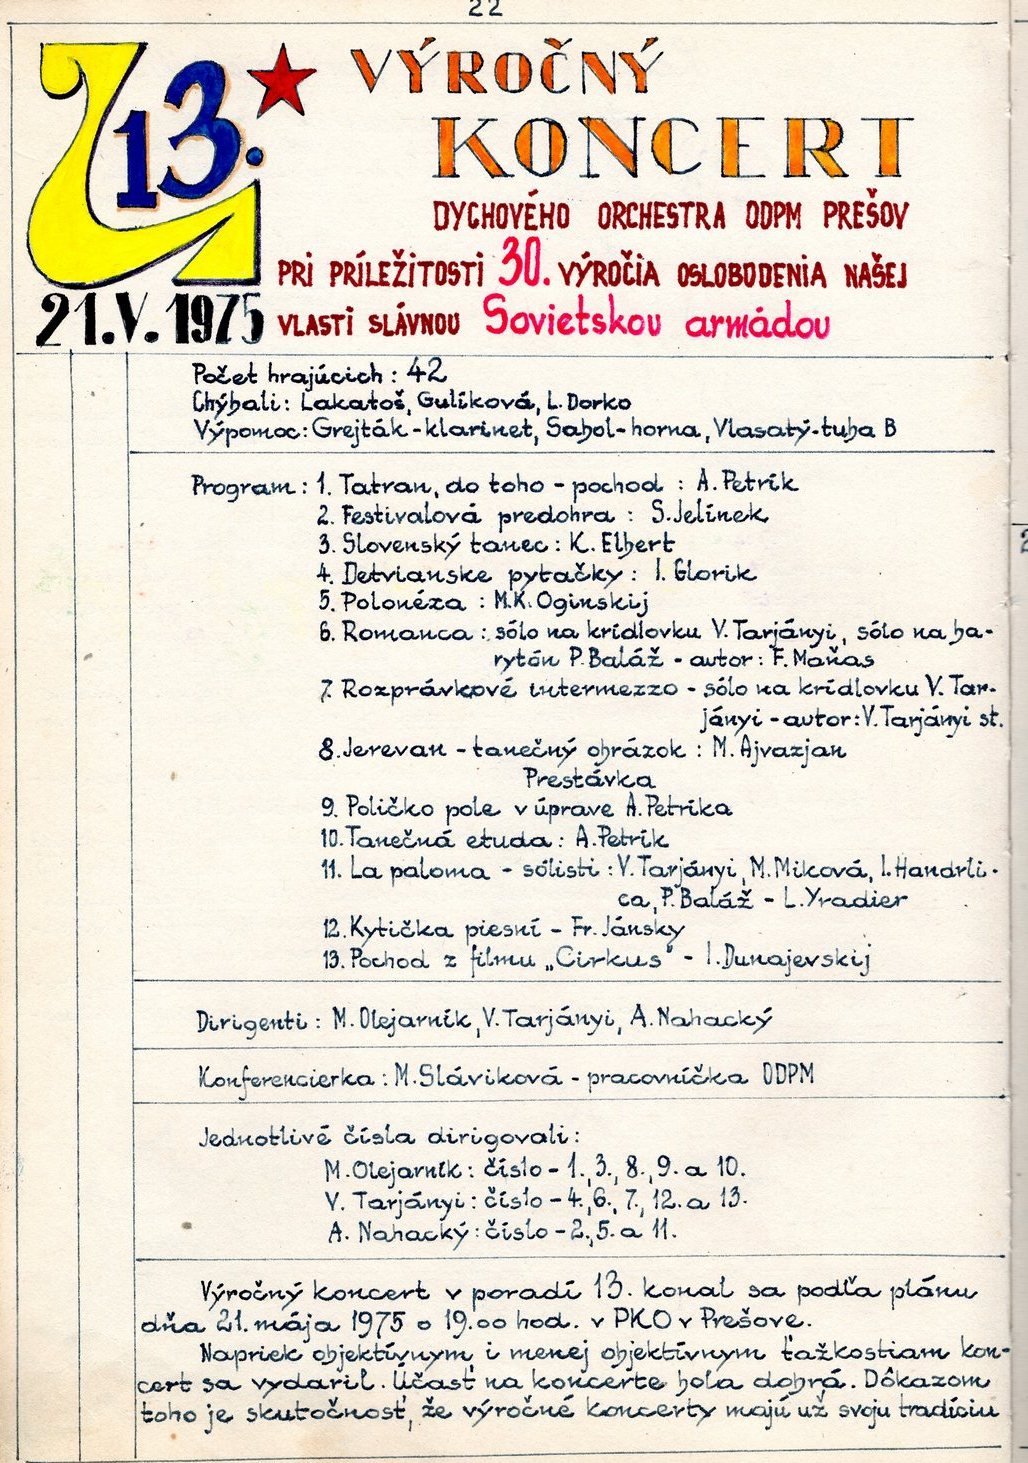 22
13.
VÝROČNÝ
KONCERT
DYCHOVÉHO ORCHESTRA ODPM PREŠOV
PRI PRÍLEŽITOSTI 30. VÝROČIA OSLOBODENIA NAŠEJ
21.V. 1975 VLASTI SLÁVNOU Sovietskou armádou
Počet hrajúcich : 42
Chýbali : Lakatoš, Gulíková, L. Dorko
Výpomoc: Grejták - klarinet, Sabol - horna, Vlasatý - tuba B
Program : 1. Tatran, do toho - pochod : A. Petrík
2. Festivalová predohra : S. Jelínek
3. Slovenský tanec : K. Elbert
4. Detvianske pytačky : I. Glorik
5. Polonéza : M.K. Oginskij
6. Romanca : sólo na krídlovku V. Tarjányi, sólo na ba-
rytón P. Baláž - autor : F. Maňas
7. Rozprávkové intermezzo - sólo na krídlovku V. Tar-
jányi - autor: V. Tarjányi st.
8. Jerevan - tanečný obrázok : M. Ajvazjan
Prestávka
9. Poličko pole v úprave A. Petríka
10. Tanečná etuda : A. Petrík
11. La paloma - sólisti : V. Tarjányi, M. Miková, I. Handrli-
ca, P. Baláž - L. Yradier
12. Kytička piesní - Fr. Jánsky
13. Pochod z filmu „Cirkus" - I. Dunajevskij
Dirigenti : M. Olejarník, V. Tarjányi, A. Nahacký
Konferencierka : M. Sláviková - pracovníčka ODPM
Jednotlivé čísla dirigovali :
M. Olejarník : číslo - 1., 3., 8., 9. a 10.
V. Tarjányi : číslo - 4., 6., 7., 12. a 13.
A. Nahacký : číslo - 2., 5. a 11.
Výročný koncert v poradí 13. konal sa podľa plánu
dňa 21. mája 1975 o 19.00 hod. v PKO v Prešove.
Napriek objektívnym, i menej objektívnym ťažkostiam kon-
cert sa vydaril. Účasť na koncerte bola dobrá. Dôkazom
toho je skutočnosť, že výročné koncerty majú už svoju tradíciu